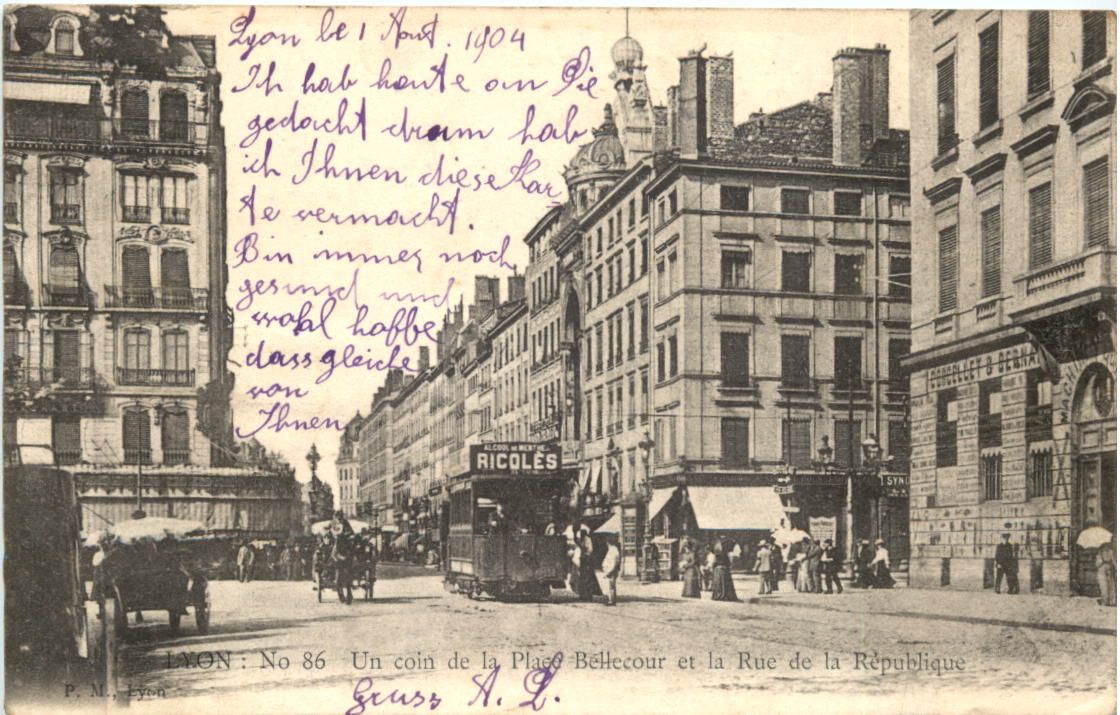 Lyon le 1 Aout. 1904
Ich hab heute an Sie
gedacht drum hab
ich Ihnen diese Kar
te vermacht.
Bin immer noch
gesund und
wohl hoffe
dassgleiche
von
Ihnen
ALCOOL DE MENTHE
RICQLÈS
SYN
LYON : No 86 Un coin de la Place Bellecour et la Rue de la République
P. M., Lyon
Gruss A. L.